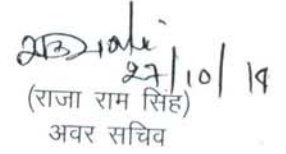 27/10/14
(राजा राम सिंह)
अवर सचिव